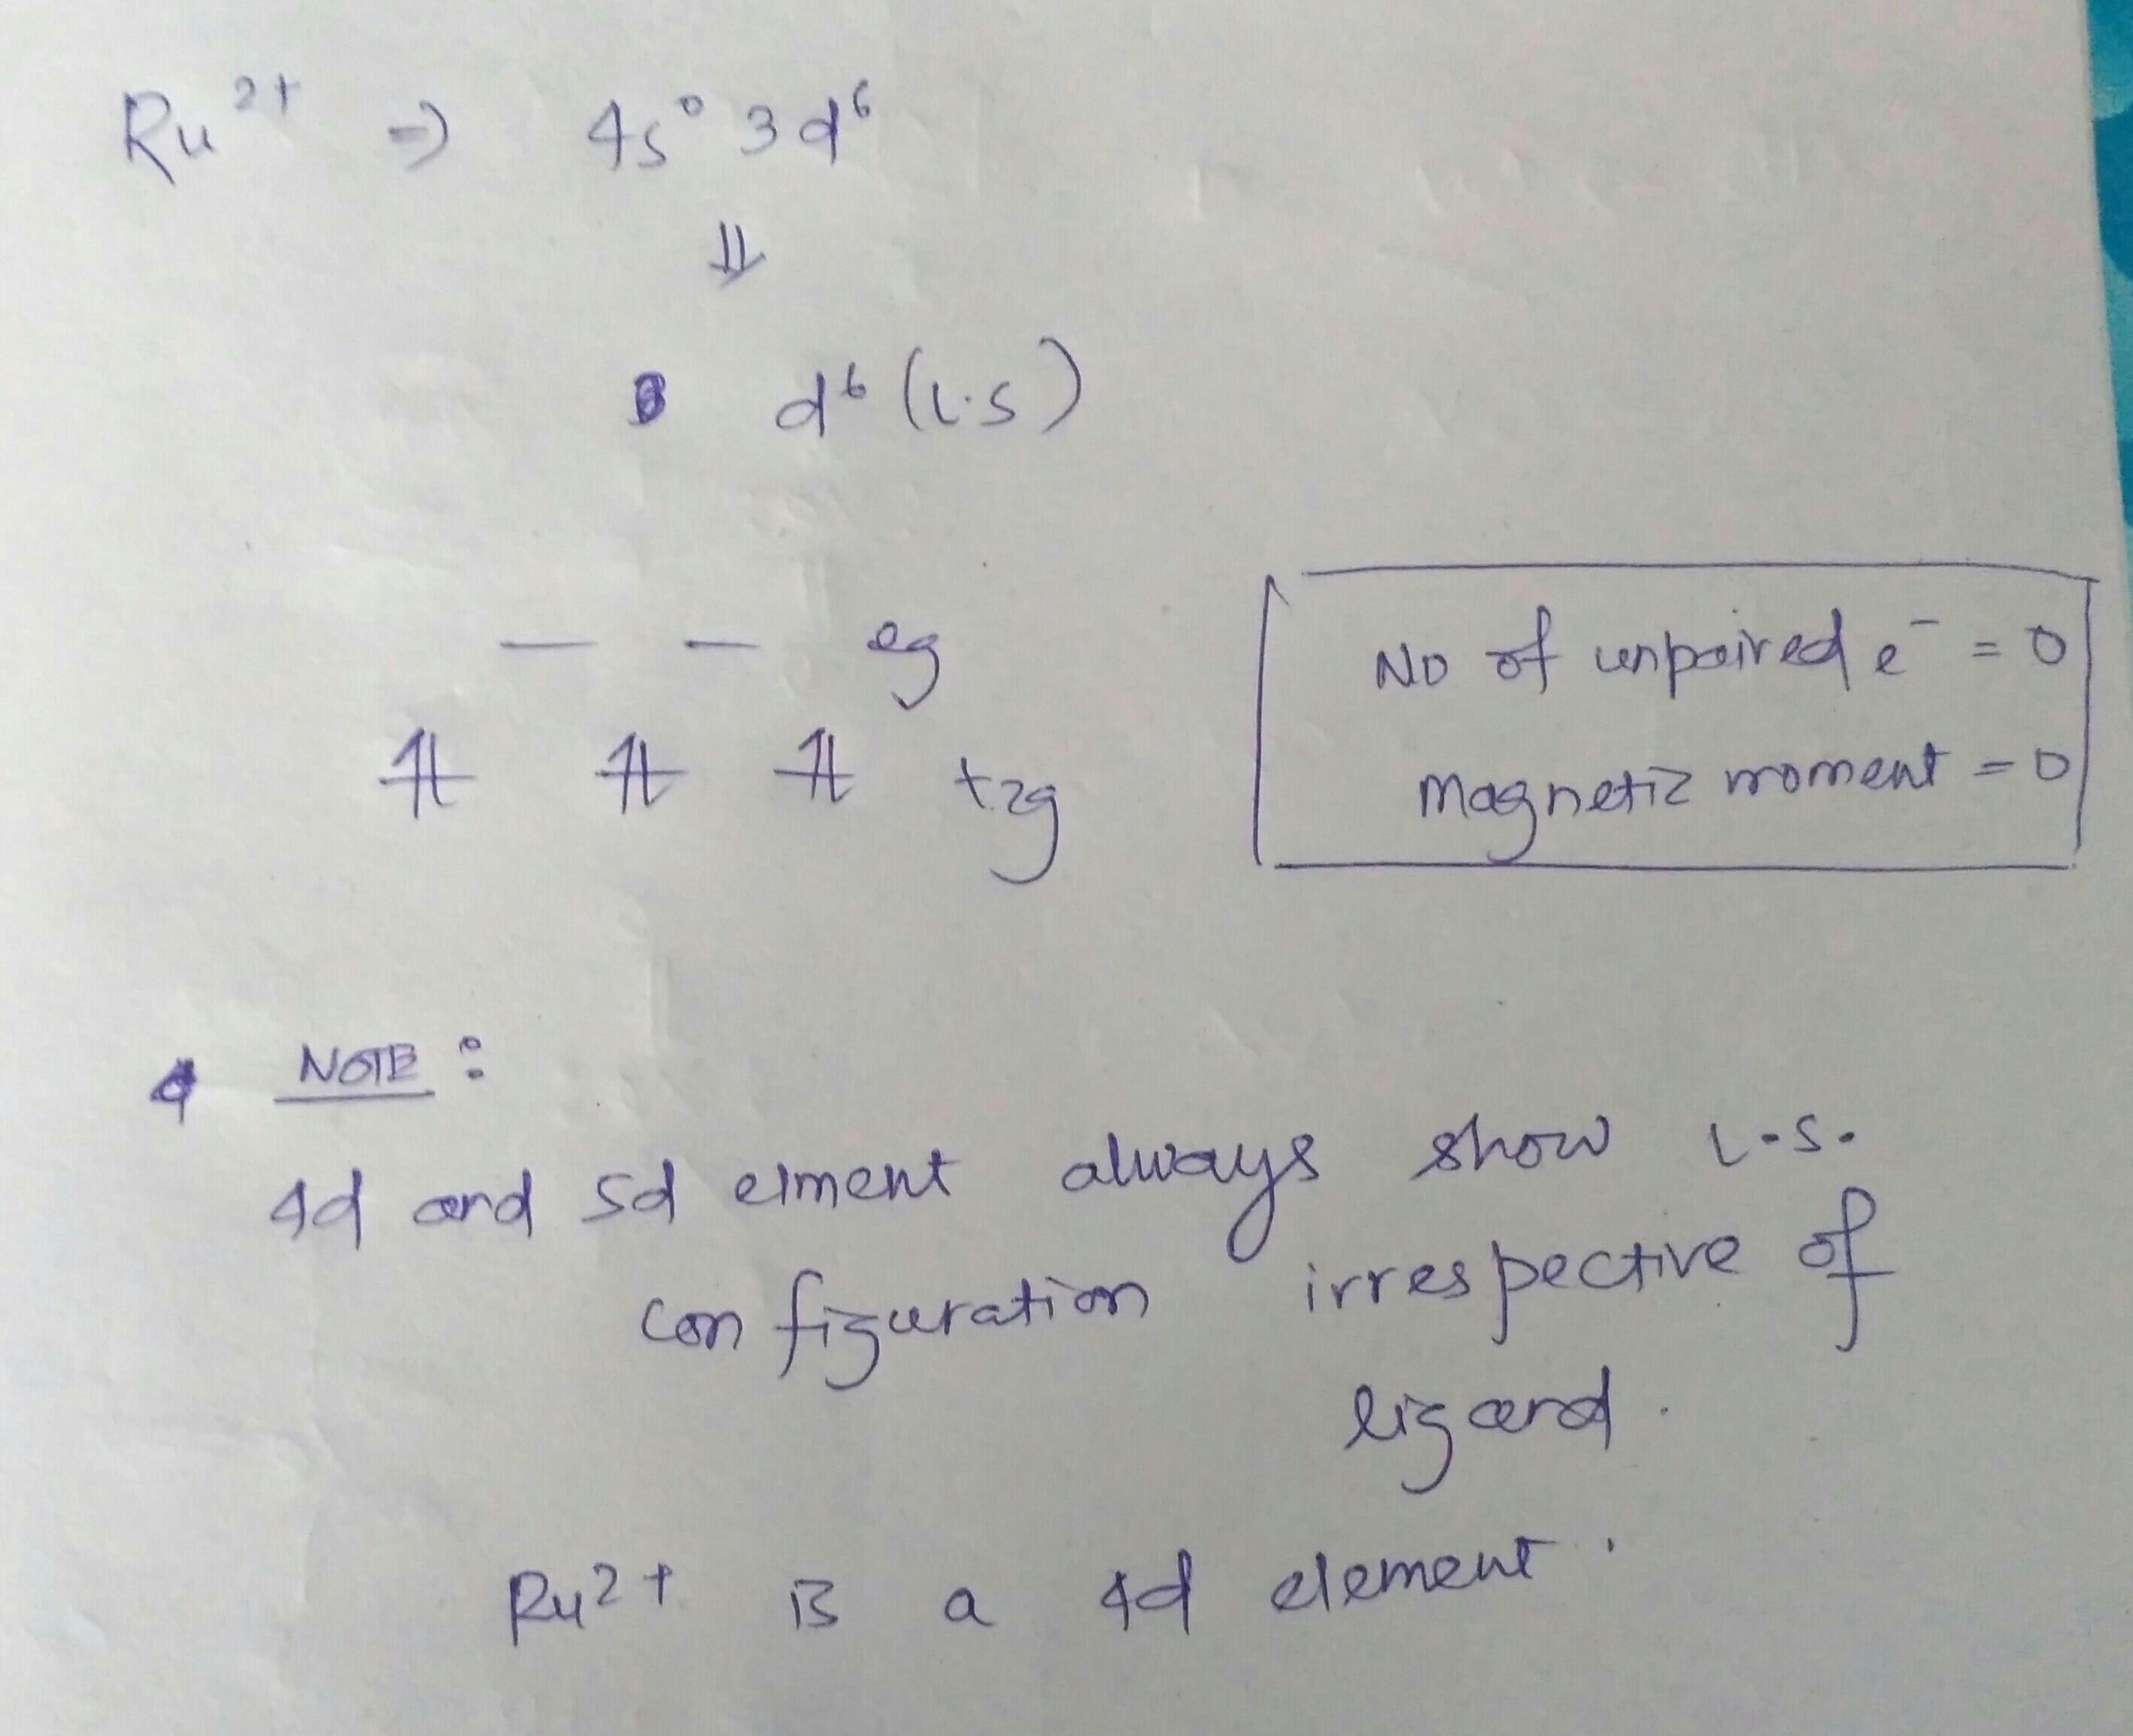 Ru²⁺ ⇒ 4s⁰ 3d⁶
⇓
d⁶ (L.S)
— — eg
⥮ ⥮ ⥮ t₂g
No of unpaired e⁻ = 0
Magnetic moment = 0
NOTE :
4d and 5d elment always show L.S.
configuration irrespective of
ligand.
Ru²⁺ is a 4d element.